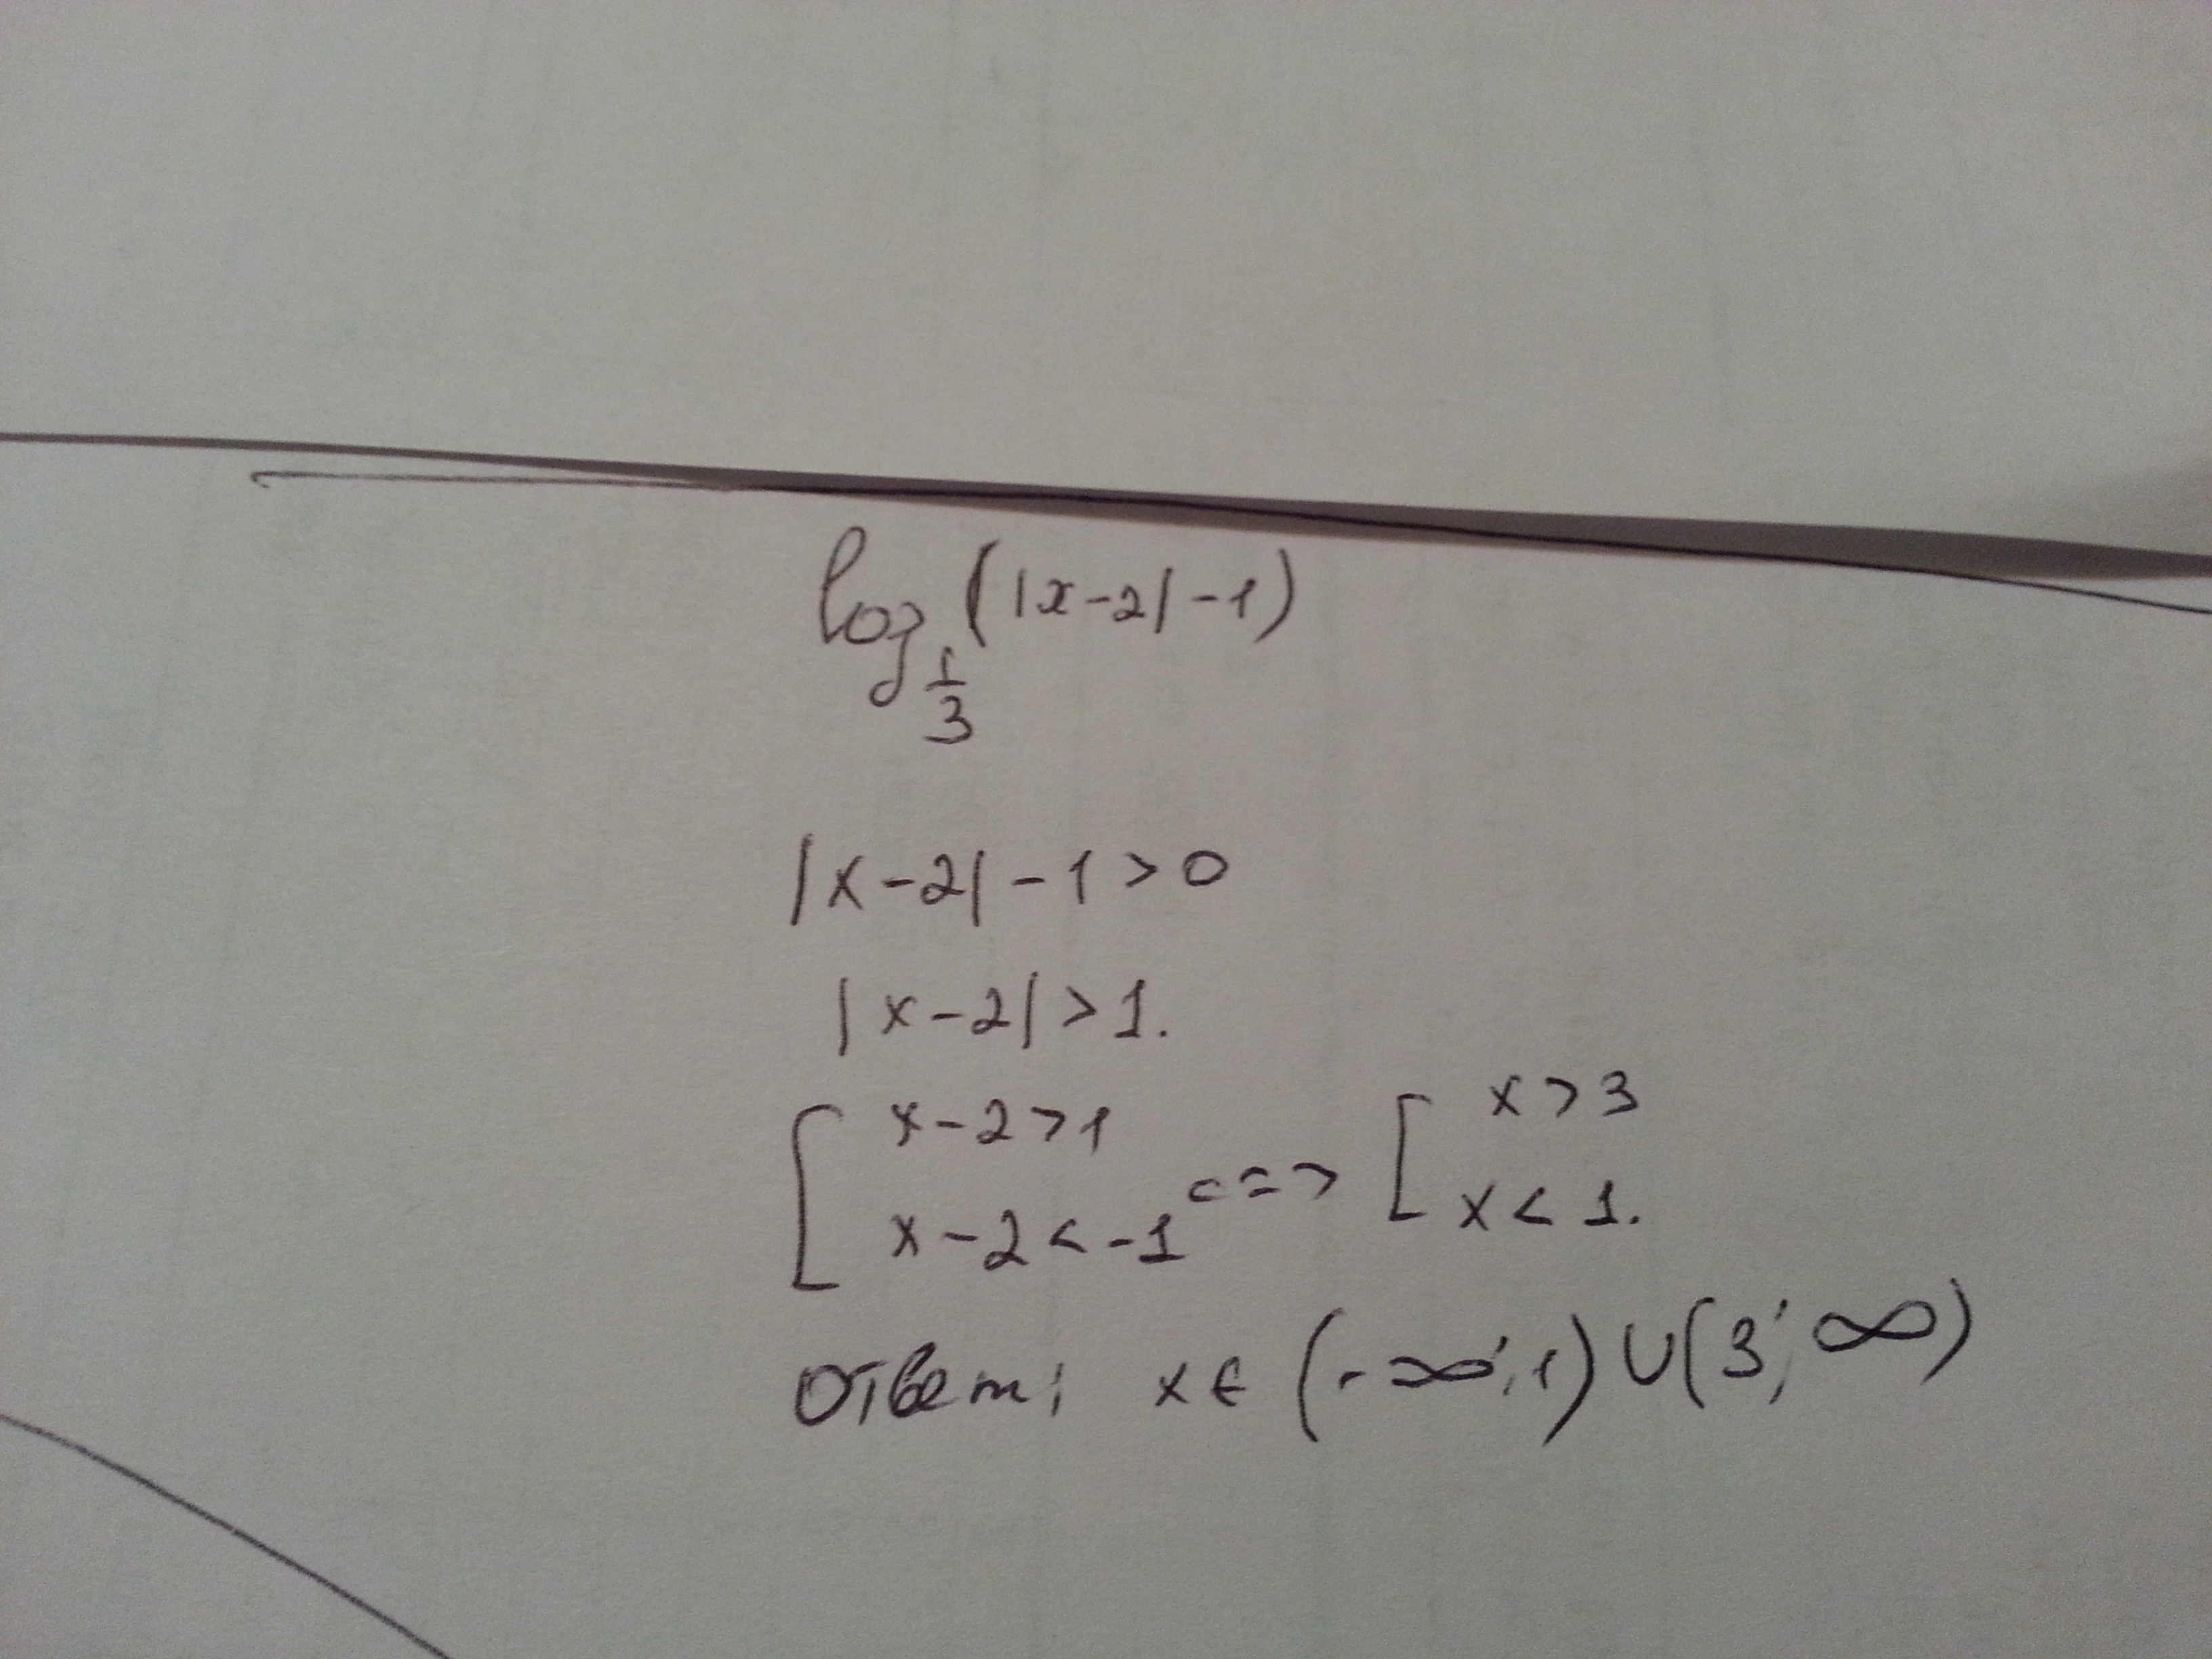 log 1/3 (|x-2|-1)
|x-2|-1>0
|x-2|>1.
[ x-2>1 x-2<-1 <=> [ x>3 x<1.
Ответ: x∈(-∞;1)∪(3;∞)